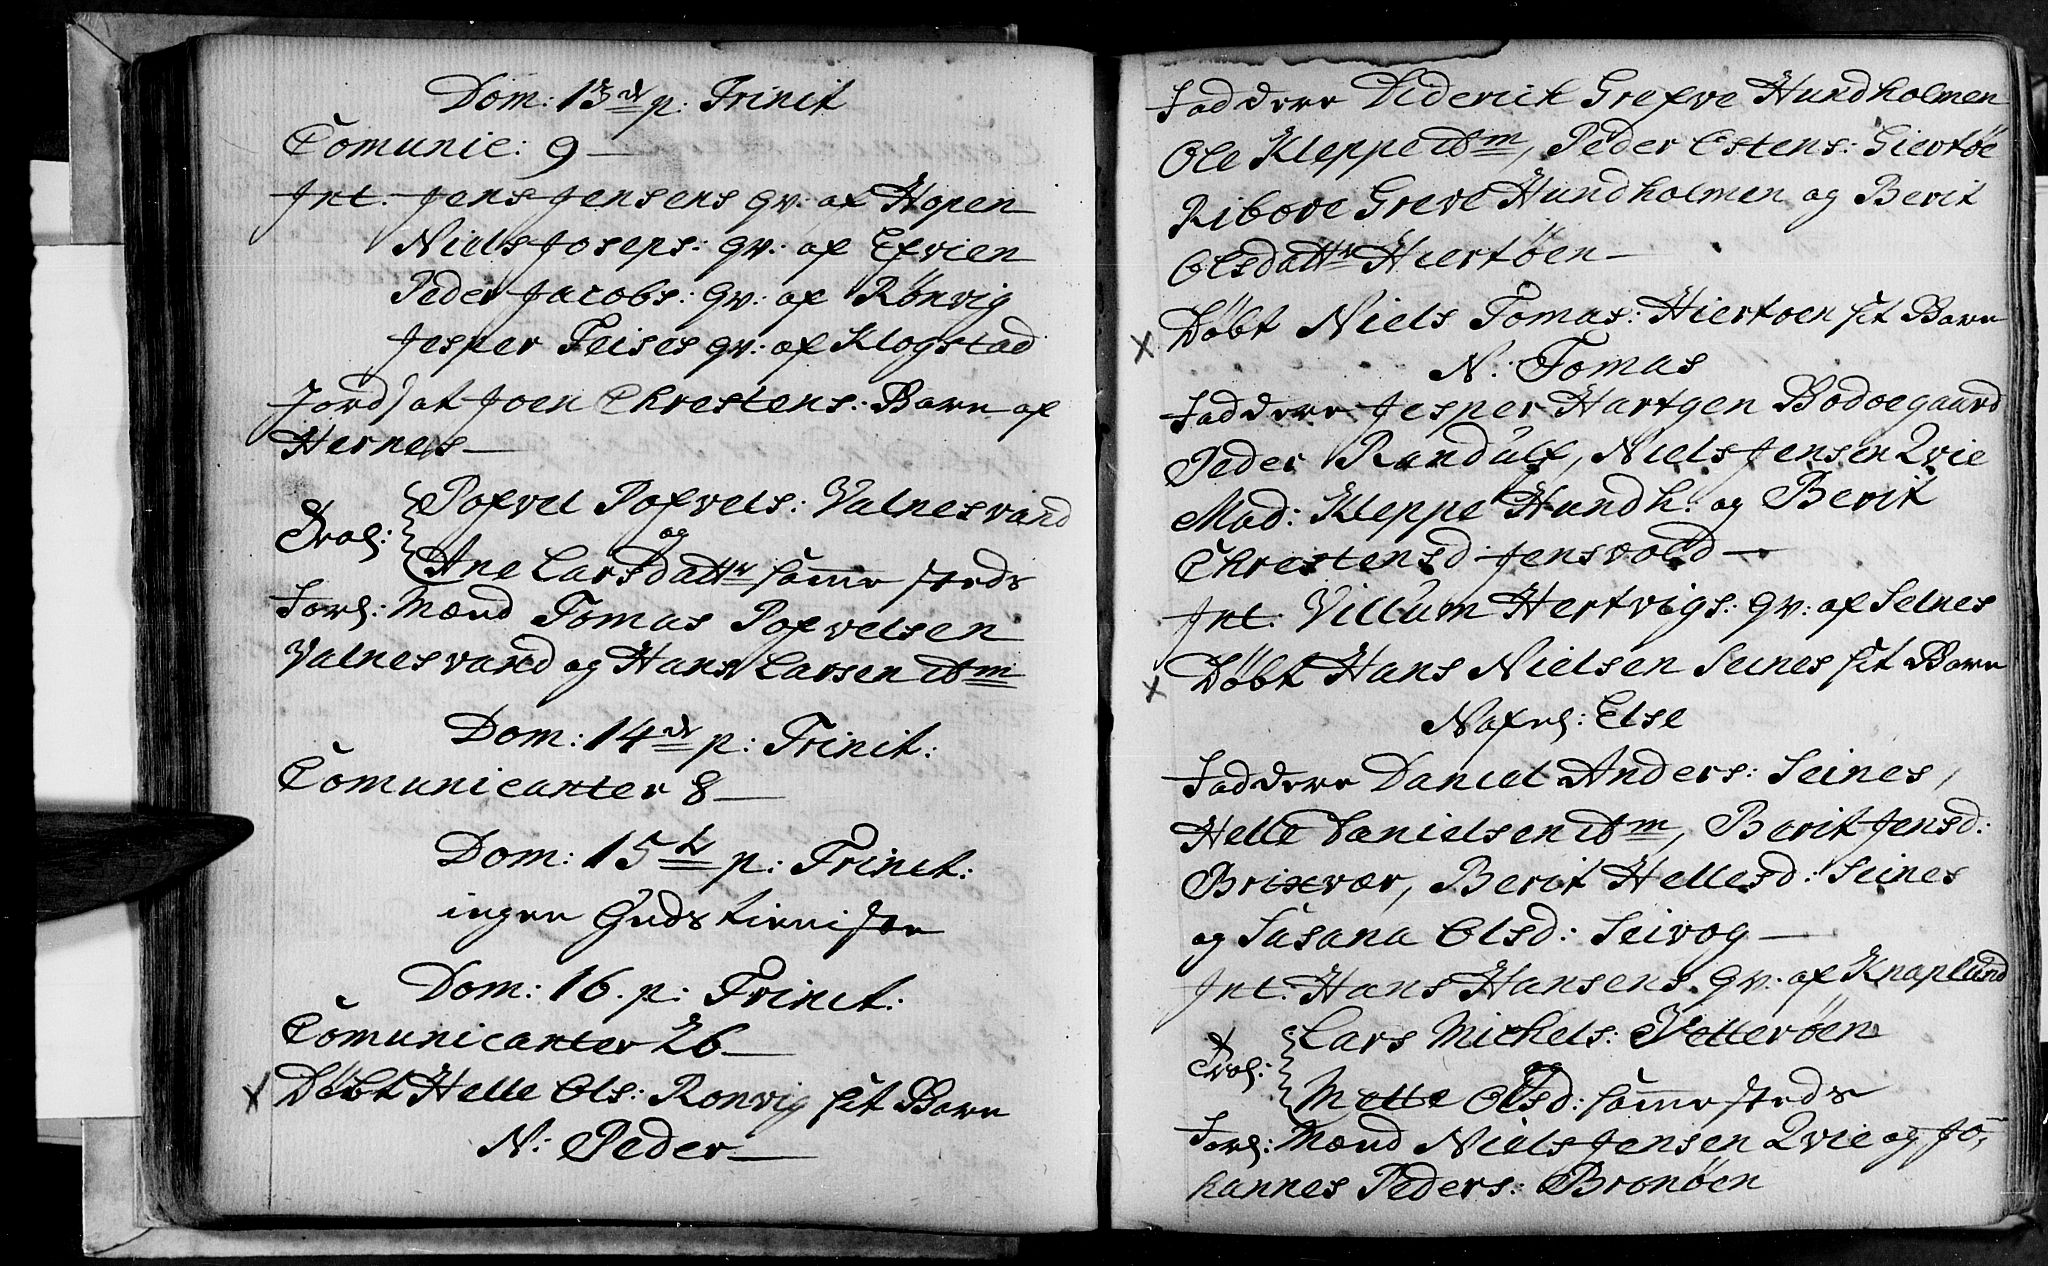 Dom: 13de p: Trinit
Comunic: 9 —
Int. Jens Jensens qv: af Hopen
Niels Joseps: qv: af Efvien
Peder Jacobs: qv: af Rönvig
Jesper Teises qv: af Klogstad
Jord) at Joen Chrestens: Barn af
Hernes —
Trol: Pofvel Pofvels: Valnesvand
og
Ane Larsdattr samme steds
Forl: Mænd Tomas Pofvelsen
Valnesvand og Hans Larsen ibm
Dom: 14de p: Trinit:
Comunicanter 8 —
Dom: 15t p: Trinit:
ingen Gudstieniste
Dom: 16. p: Trinit:
Comunicanter 26 —
x Döbt Helle Ols: Ronvig sit Barn
N: Peder —
Faddere Diderick Grefve Hundholmen
Ole Kleppe ibm, Peder Ostens: Giertöe
Ribore Greve Hundholmen og Berit
Olsdattr Hiertöen —
x Döbt Niels Tomas: Hiertoen sit Barn
N: Tomas
Faddere Jesper Hartgen Bodoegaard
Peder Randulf, Niels Jensen Qvie
Mad: Kleppe Hundh: og Berit
Chrestensd Jensvold —
Int. Villum Hertvigs: qv: af Selnes
x Döbt Hans Nielsen Seines sit Barn
Nafnl: Else
Faddere Daniel Anders: Seines,
Helle Danielsen ibm, Berit Jensd:
Brixvær, Berit Hellesd: Seines
og Susana Olsd: Seivog —
Int. Hans Hansens qv: af Knaplund
Trol: Lars Michels: Vetteröen
og
Mette Olsd: samme steds
Forl: Mænd Niels Jensen Qvie og Jo-
hannes Peders: Bronöen